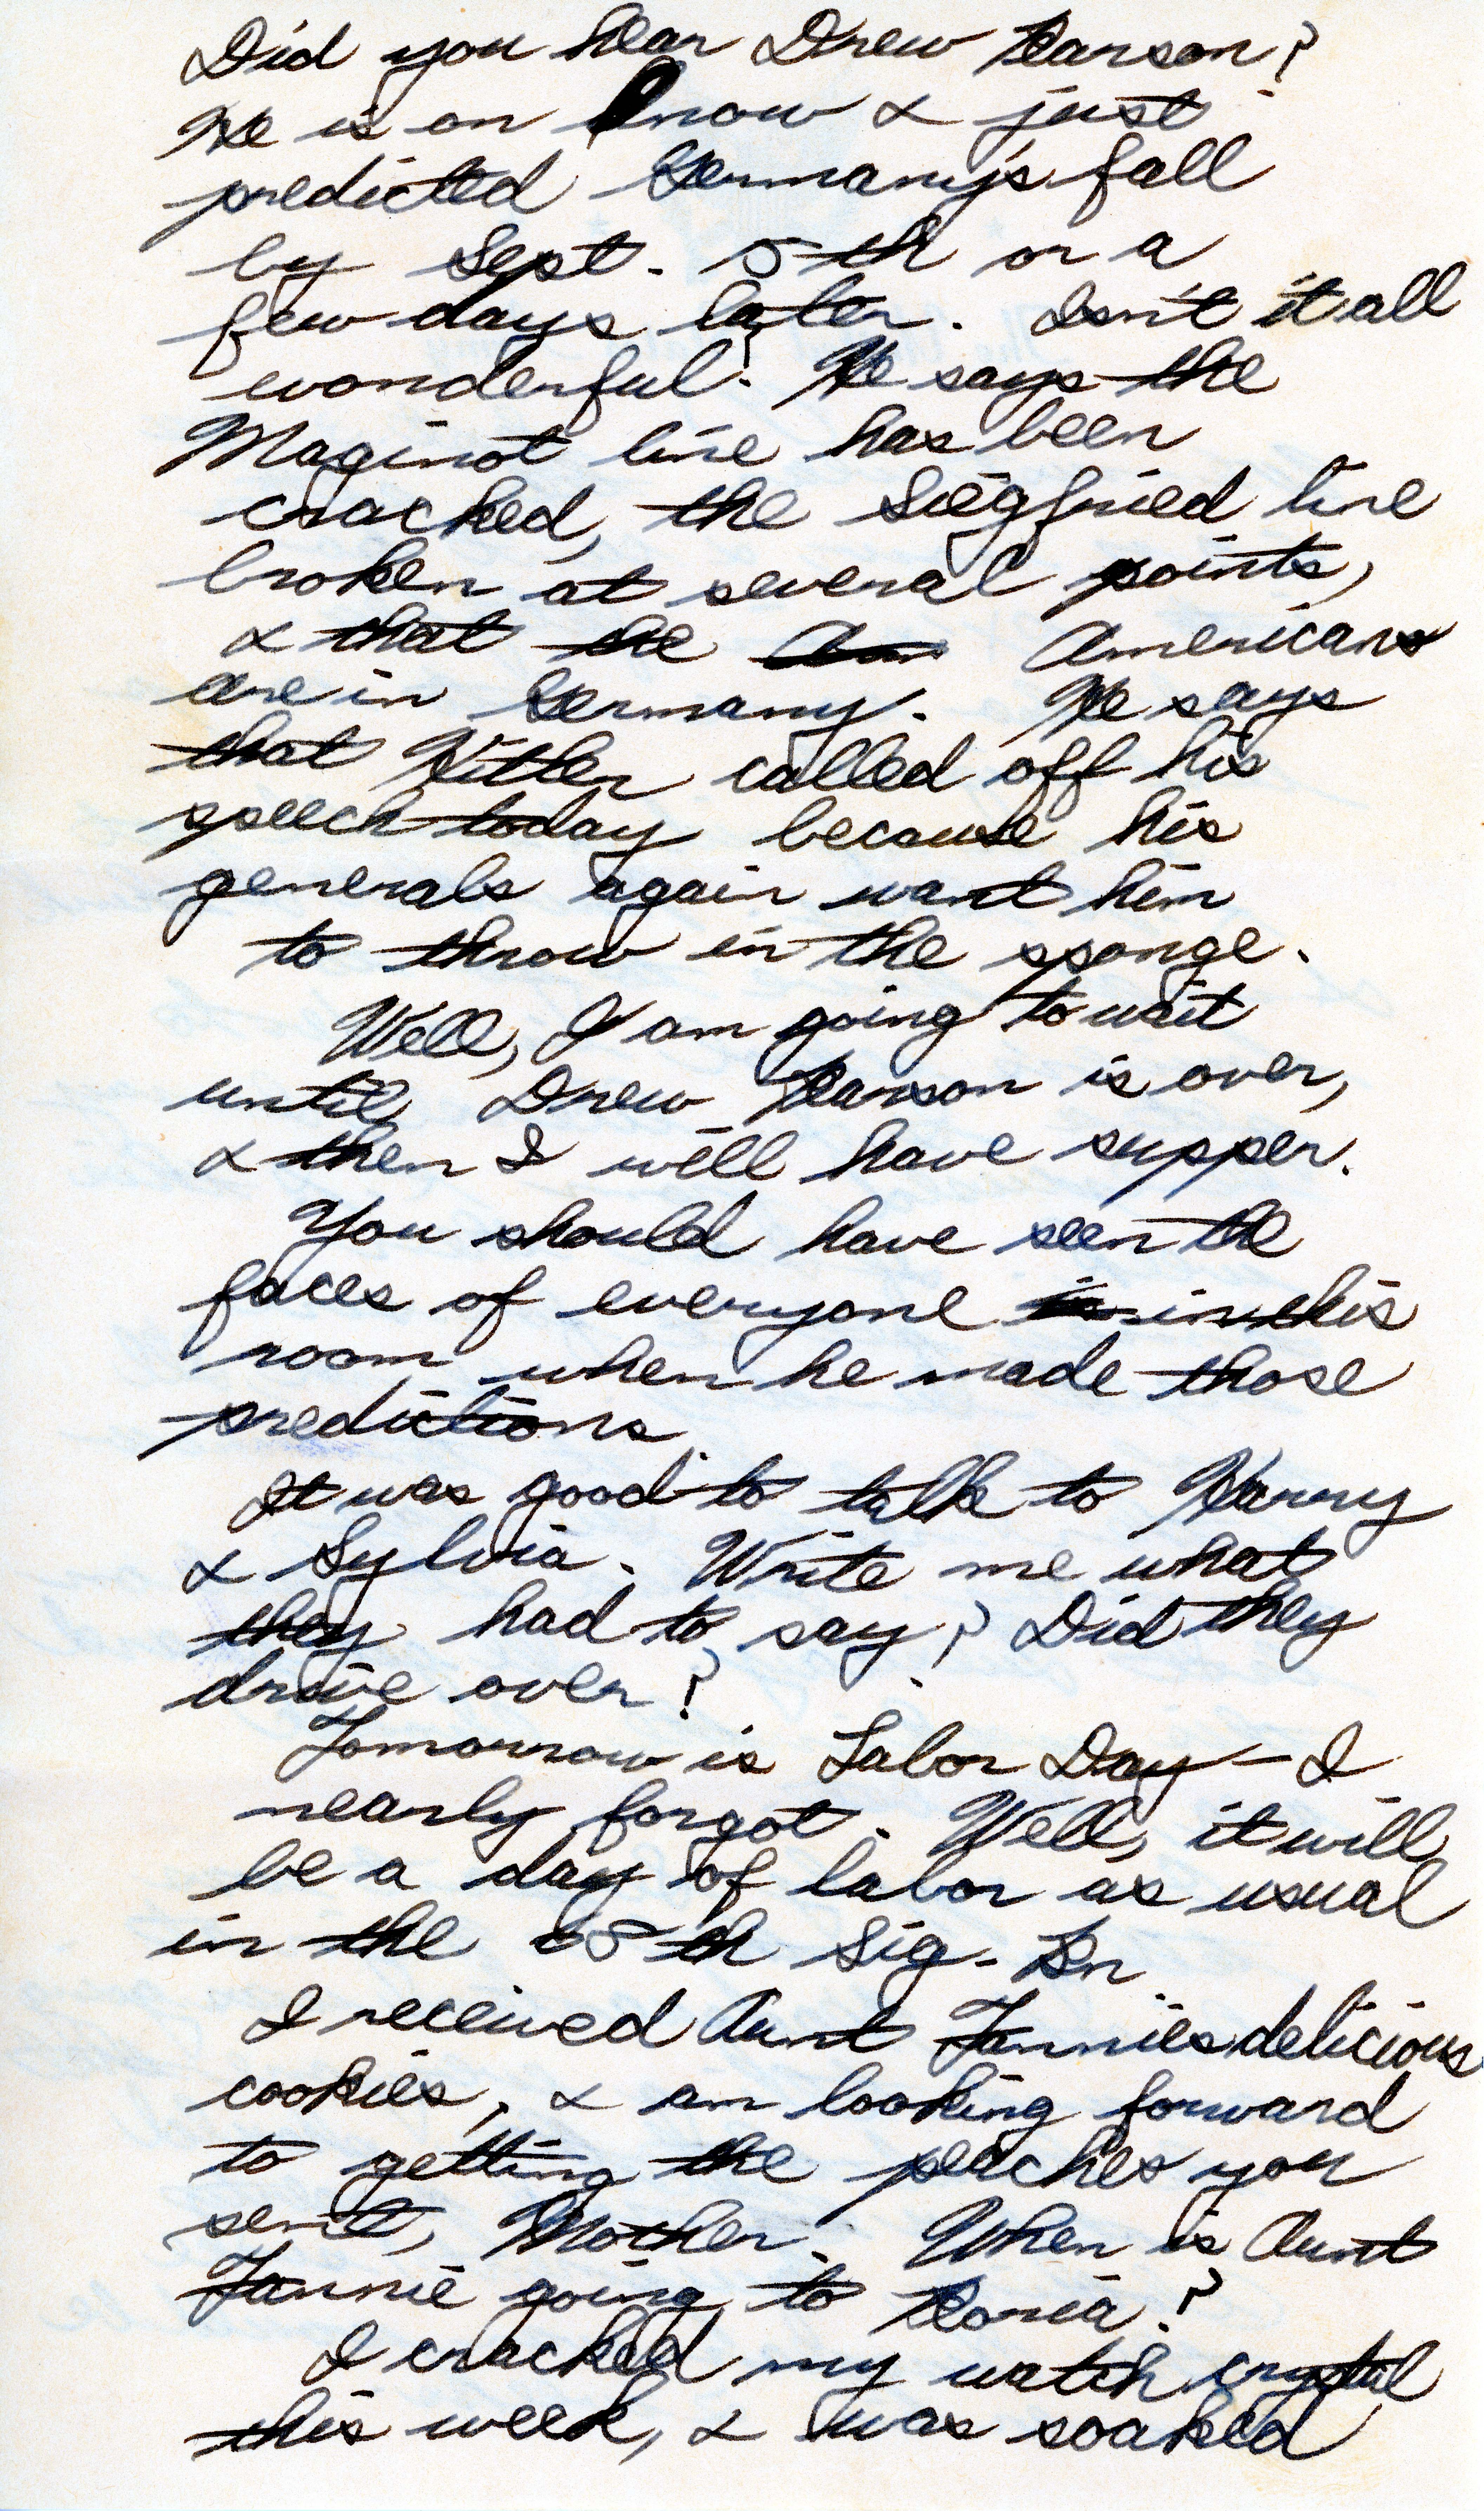 Did you hear Drew Pearson?
He is on now & just
predicted Germany's fall
by Sept. 5th or a
few days later. Isn't it all
wonderful? He says the
Maginot line has been
cracked, the Siegfried line
broken at several points,
& that the Americans
are in Germany. He says
that Hitler called off his
speech today because his
generals again want him
to throw in the sponge.
Well, I am going to wait
until Drew Pearson is over,
& then I will have supper.
You should have seen the
faces of everyone in this
room when he made those
predictions.
It was good to talk to Harry
& Sylvia. Write me what
they had to say? Did they
drive over?
Tomorrow is Labor Day — I
nearly forgot. Well, it will
be a day of labor as usual
in the Sig. Bn.
I received Aunt Fannie's delicious
cookies, & am looking forward
to getting the peaches you
sent, Mother. When is Aunt
Fannie going to Peoria?
I cracked my watch crystal
this week, & was soaked